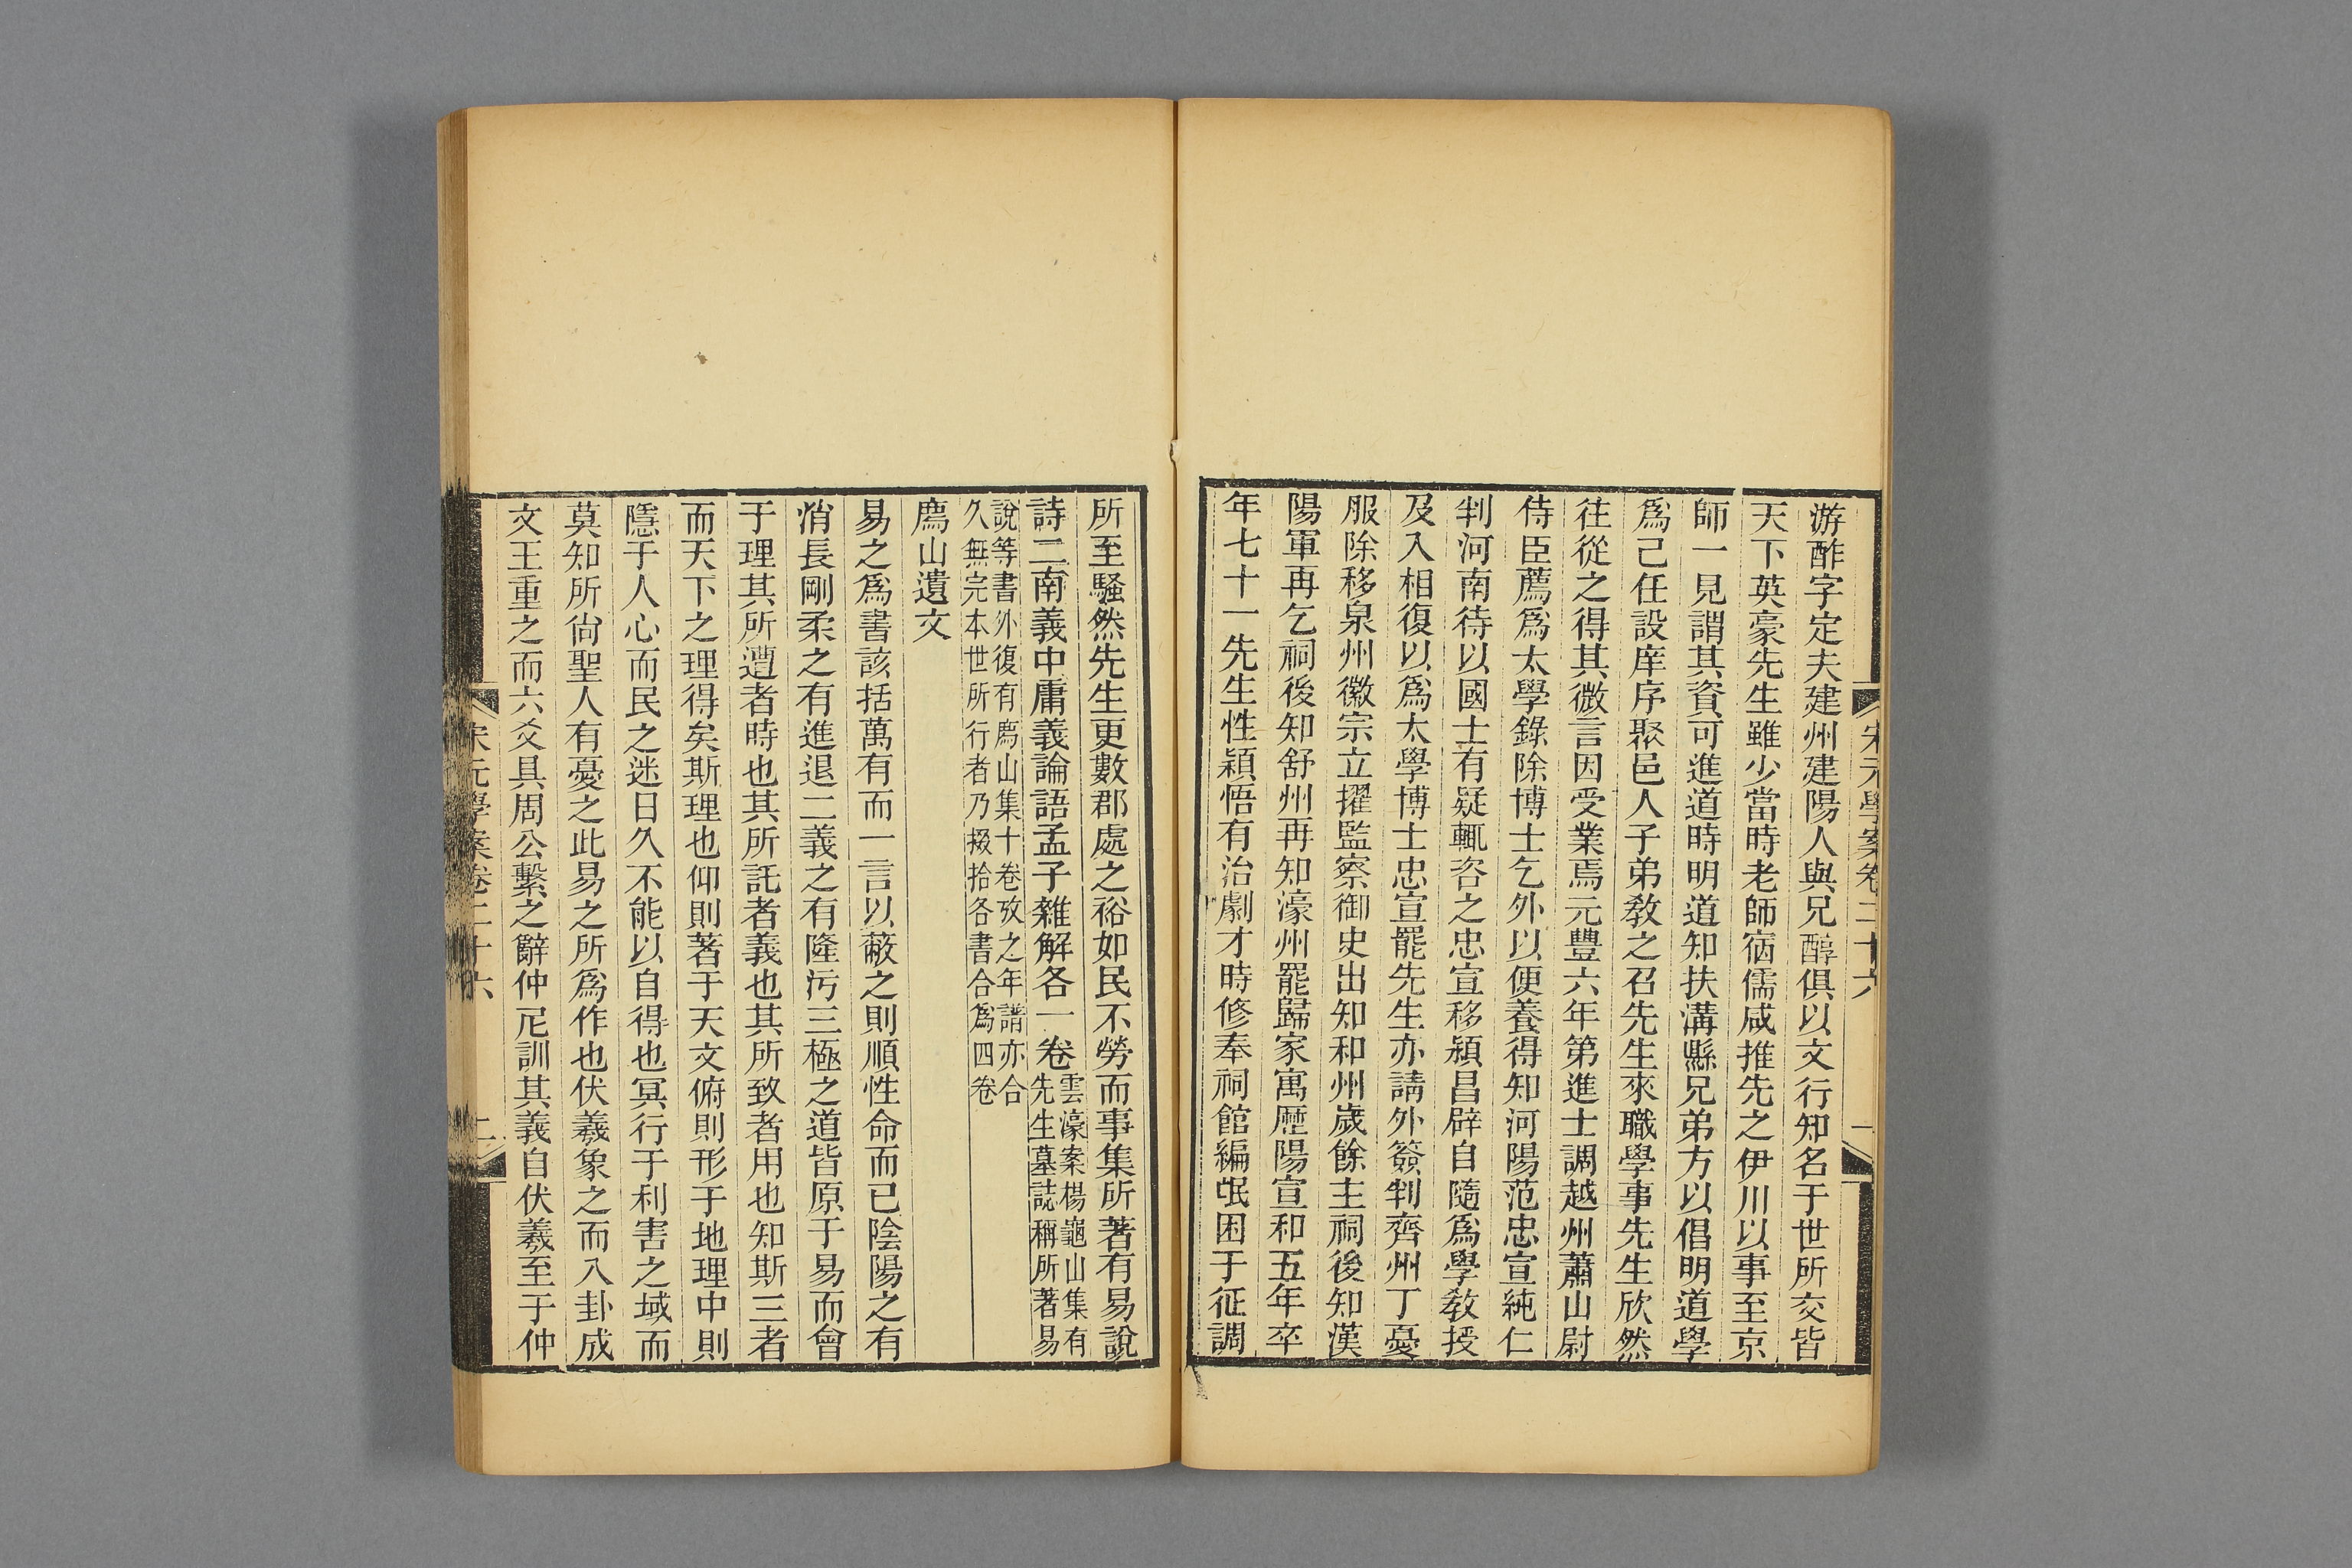 宋元學案卷二十六
一
游酢字定夫建州建陽人與兄醇俱以文行知名于世所交皆
天下英豪先生雖少當時老師宿儒咸推先之伊川以事至京
師一見謂其資可進道時明道知扶溝縣兄弟方以倡明道學
爲己任設庠序聚邑人子弟敎之召先生來職學事先生欣然
往從之得其微言因受業焉元豐六年第進士調越州蕭山尉
侍臣薦爲太學錄除博士乞外以便養得知河陽范忠宣純仁
判河南待以國士有疑輒咨之忠宣移潁昌辟自隨爲學敎授
及入相復以爲太學博士忠宣罷先生亦請外簽判齊州丁憂
服除移泉州徽宗立擢監察御史出知和州歲餘主祠後知漢
陽軍再乞祠後知舒州再知濠州罷歸家寓歷陽宣和五年卒
年七十一先生性穎悟有治劇才時修奉祠館編氓困于征調
所至騷然先生更數郡處之裕如民不勞而事集所著有易說
詩二南義中庸義論語孟子雜解各一卷雲濠案楊龜山集有
先生墓誌稱所著易
說等書外復有廌山集十卷攷之年譜亦合
久無完本世所行者乃掇拾各書合爲四卷
廌山遺文
易之爲書該括萬有而一言以蔽之則順性命而已陰陽之有
消長剛柔之有進退二義之有隆污三極之道皆原于易而會
于理其所遭者時也其所託者義也其所致者用也知斯三者
而天下之理得矣斯理也仰則著于天文俯則形于地理中則
隱于人心而民之迷日久不能以自得也冥行于利害之域而
莫知所尙聖人有憂之此易之所爲作也伏羲象之而八卦成
文王重之而六爻具周公繫之辭仲尼訓其義自伏羲至于仲
宋元學案卷二十六
二